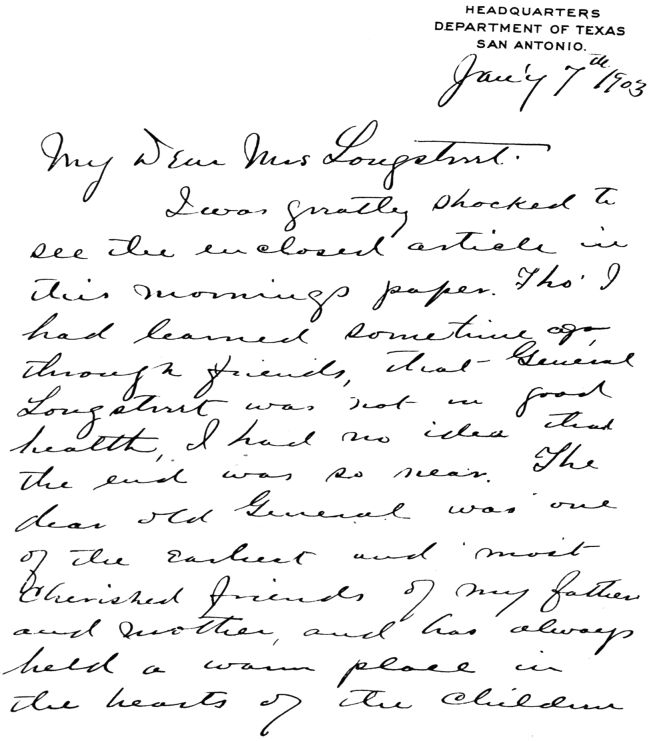 HEADQUARTERS
DEPARTMENT OF TEXAS
SAN ANTONIO.
Jan'y 7th 1903
My Dear Mrs Longstreet.
I was greatly shocked to
see the enclosed article in
this mornings paper. Tho' I
had learned sometime ago,
through friends, that General
Longstreet was not in good
health, I had no idea that
the end was so near. The
dear old General was one
of the earliest and most
cherished friends of my father
and mother, and has always
held a warm place in
the hearts of the children